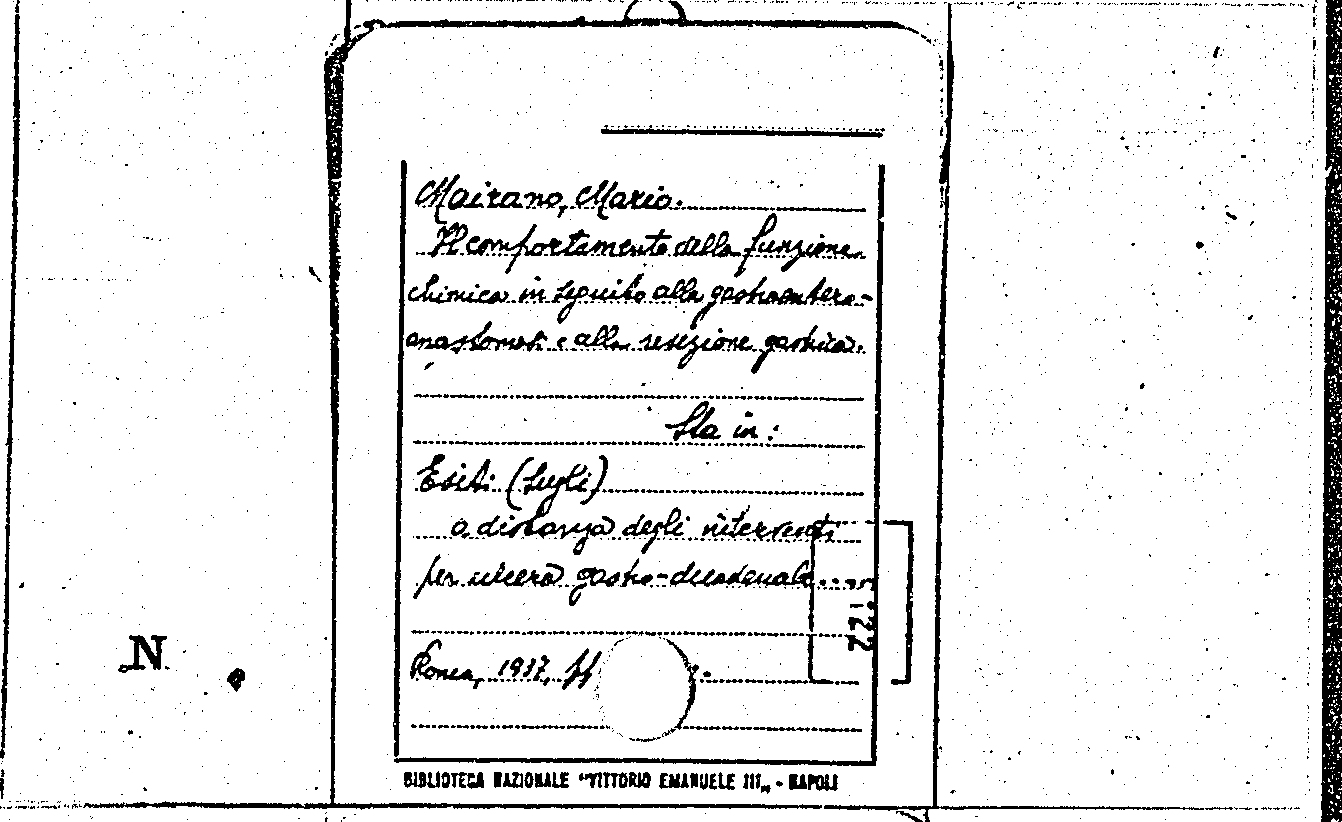 Mairano, Mario.
Il comportamento della funzione
chimica in seguito alla gastroentero-
anastomosi e alla resezione gastrica.
Sta in:
Esiti (Sugli)
a distanza degli interventi
per ulcera gastro-duodenale...
22.
Roma, 1937,
N
BIBLIOTECA NAZIONALE "VITTORIO EMANUELE III„ - NAPOLI